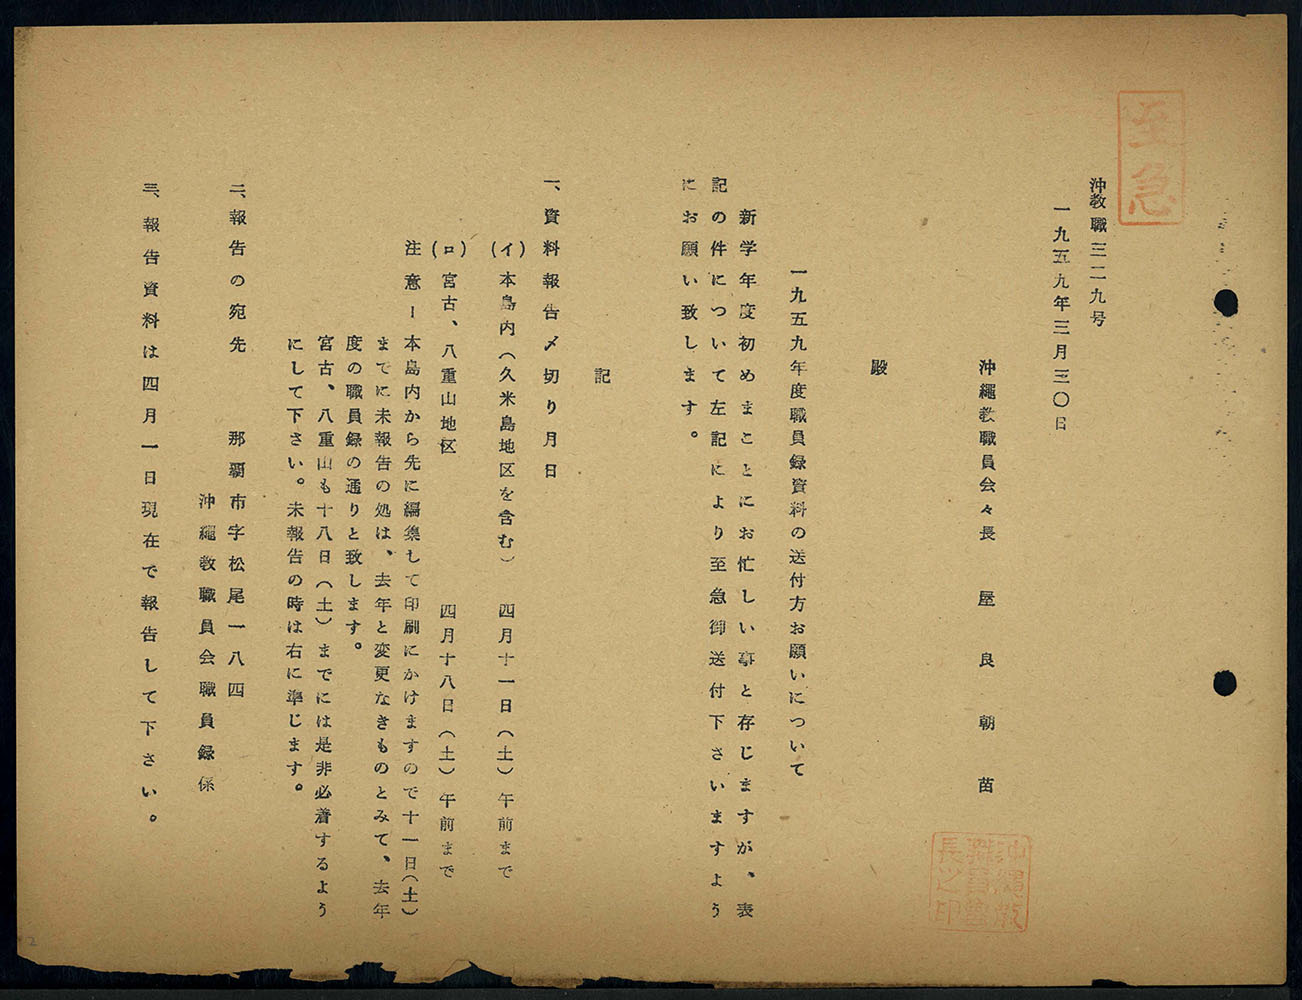 至急
沖教職三二九号
一九五九年三月三〇日
沖繩教職員会々長 屋良朝苗
沖繩教職員会長之印
殿
一九五九年度職員録資料の送付方お願いについて
新学年度初めまことにお忙しい事と存じますが、表
記の件について左記により至急御送付下さいますよう
にお願い致します。
記
一、資料報告〆切り月日
(イ)本島内(久米島地区を含む) 四月十一日(土)午前まで
(ロ)宮古、八重山地区 四月十八日(土)午前まで
注意ー本島内から先に編集して印刷にかけますので十一日(土)
までに未報告の処は、去年と変更なきものとみて、去年
度の職員録の通りと致します。
宮古、八重山も十八日(土)までには是非必着するよう
にして下さい。未報告の時は右に準じます。
二、報告の宛先 那覇市字松尾一八四
沖繩教職員会職員録係
三、報告資料は四月一日現在で報告して下さい。
2